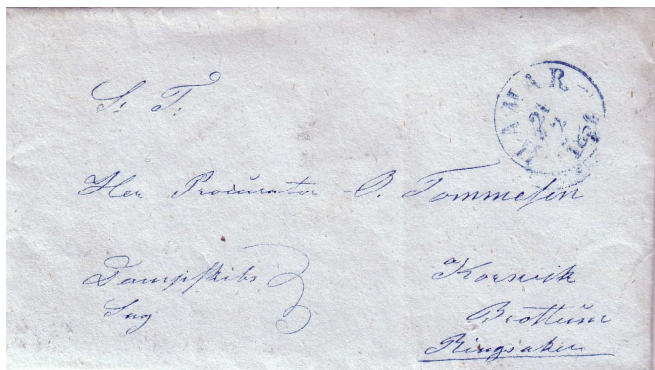 S. T.
HAMAR
Herr Procurator O. Tommesen
Dampskibs
Sag
Korsvik
Brøttum
Ringsaker